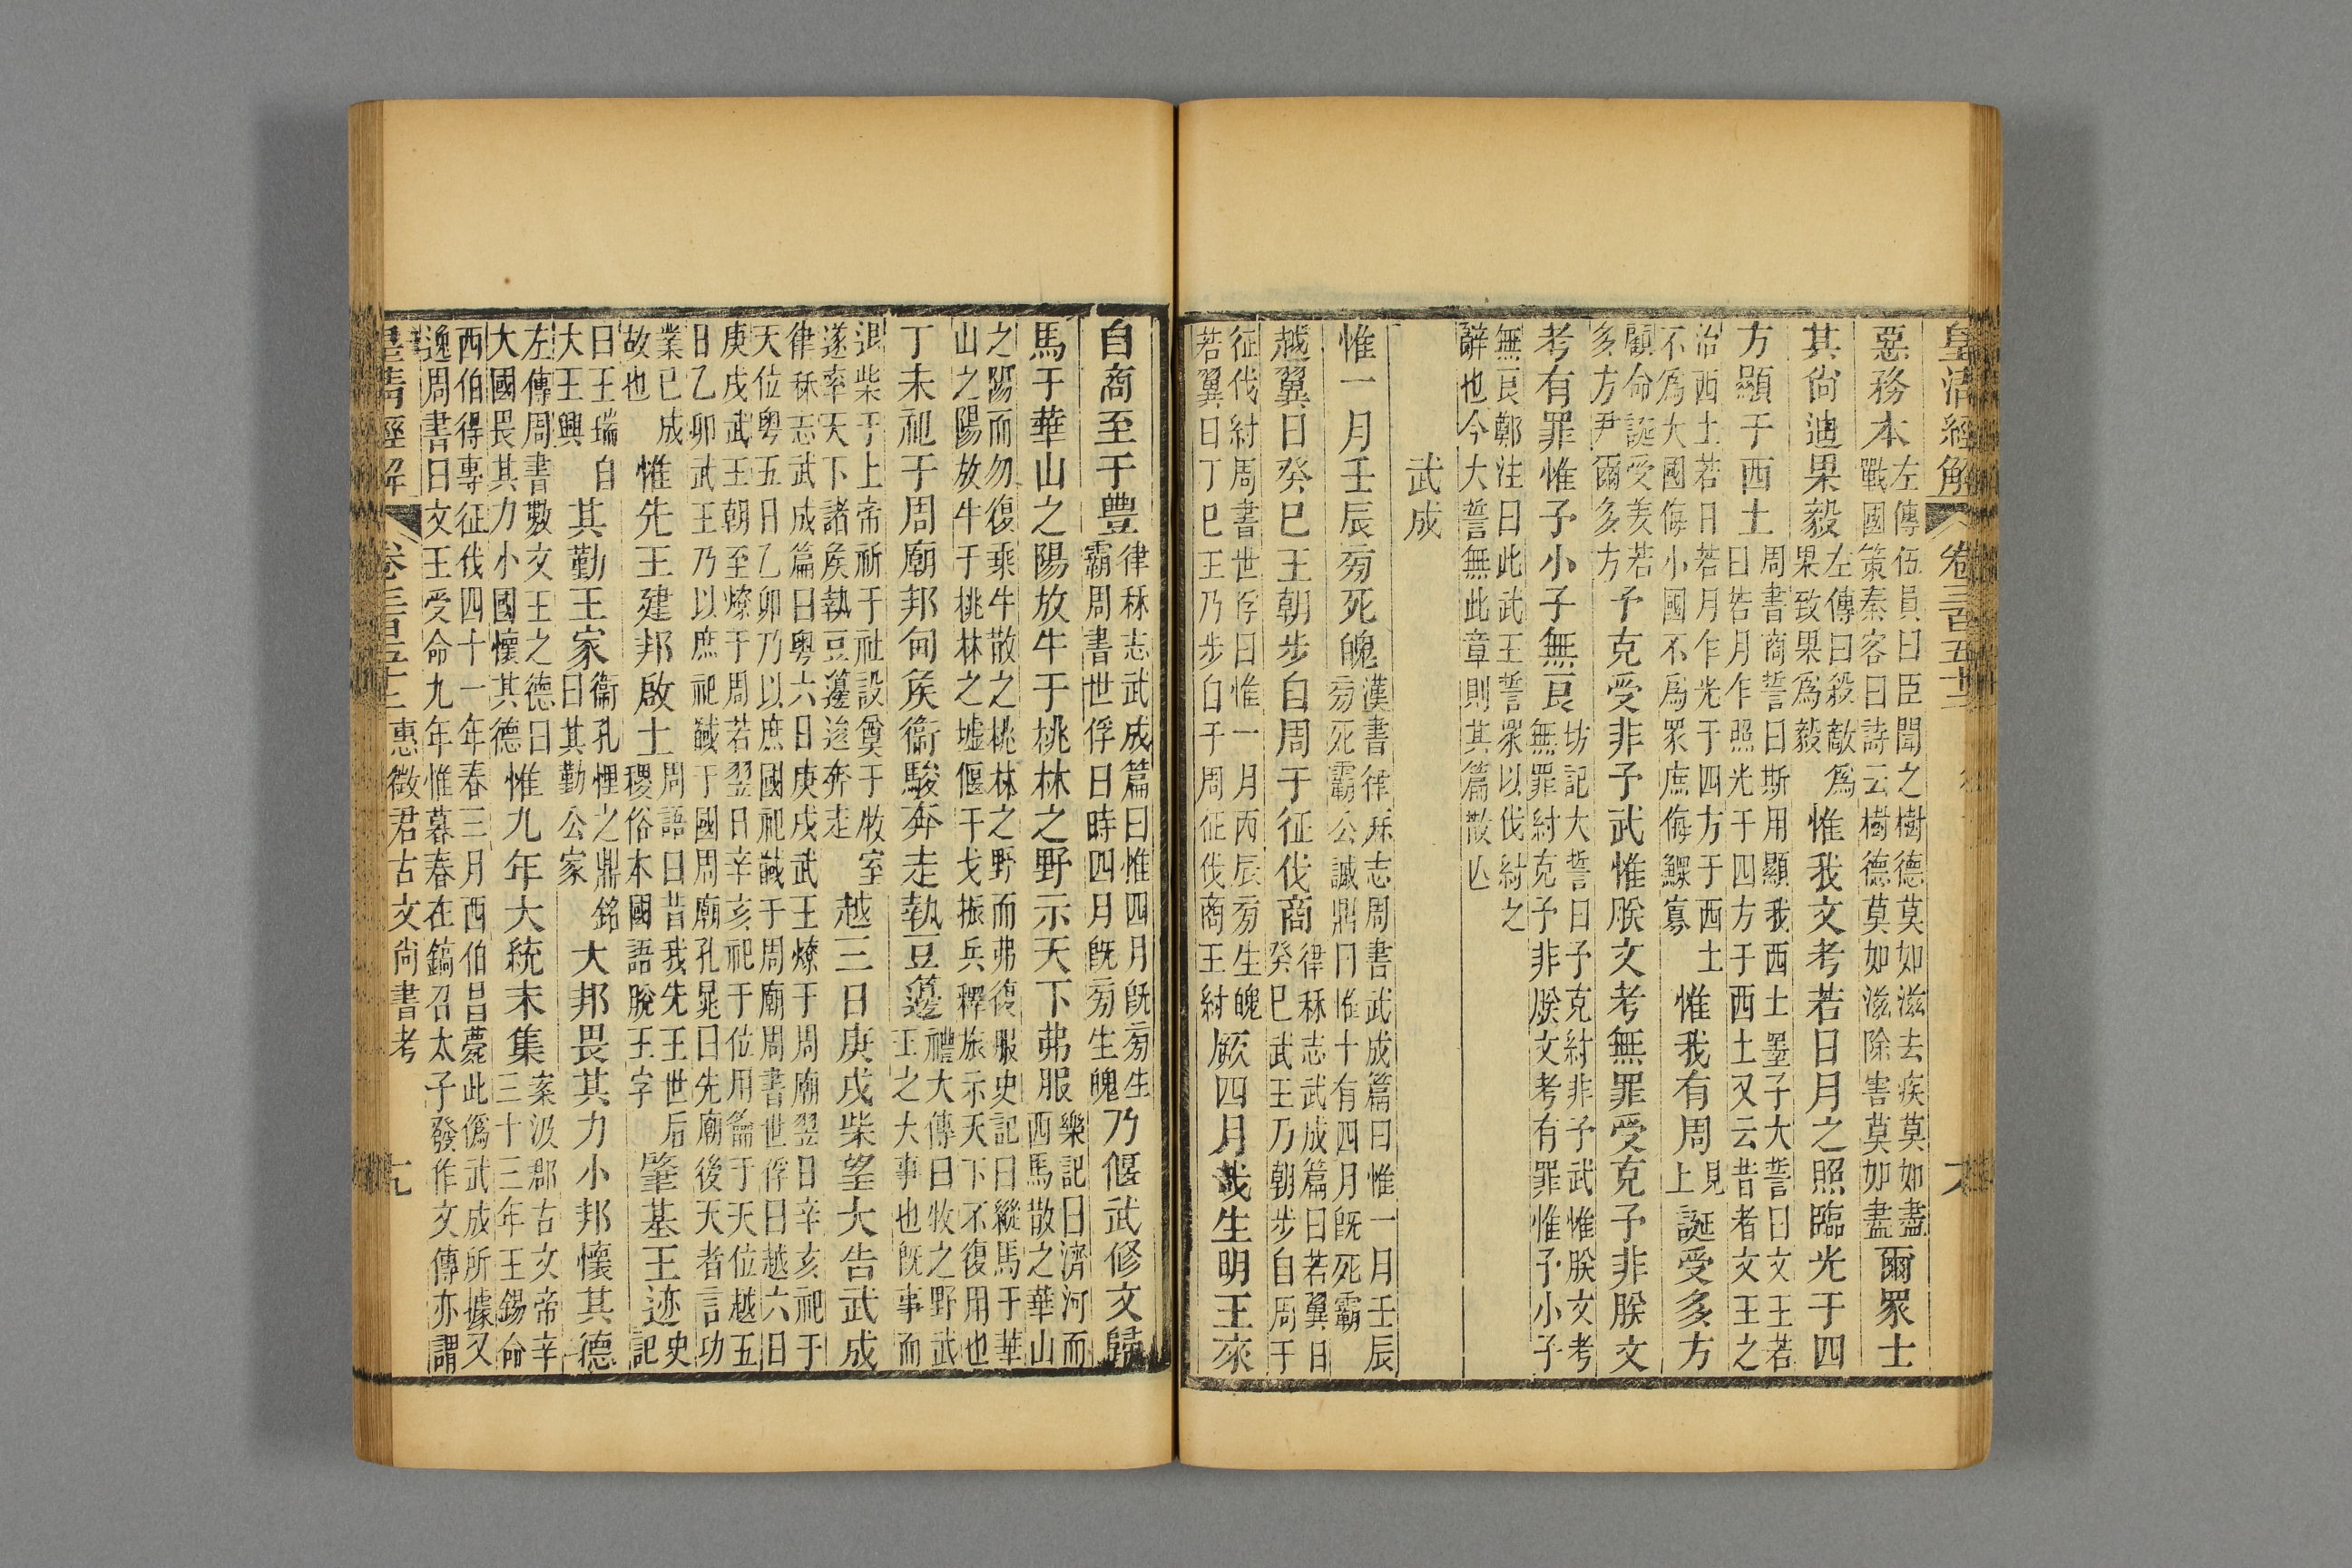 皇清經解 卷三百五十二
惡務本左傳伍員曰臣聞之樹德莫如滋去疾莫如盡戰國策秦客曰詩云樹德莫如滋除害莫如盡爾眾士
其尚迪果毅左傳曰殺敵爲果致果爲毅惟我文考若日月之照臨光于四
方顯于西土周書商誓曰斯用顯我西土墨子大誓曰文王若日若月乍照光于四方于西土又云昔者文王之
治西土若日若月乍光于四方于西土不爲大國侮小國不爲眾庶侮鰥寡惟我有周見上誕受多方
顧命誕受羑若多方尹爾多方予克受非予武惟朕文考無罪受克予非朕文
考有罪惟予小子無良坊記大誓曰予克紂非予武惟朕文考無罪紂克予非朕文考有罪惟予小子
無良鄭注曰此武王誓眾以伐紂之辭也今大誓無此章則其篇散亾
武成
惟一月壬辰㫄死魄漢書律秝志周書武成篇曰惟一月壬辰㫄死霸公誠鼎曰惟十有四月旣死霸
越翼日癸巳王朝步自周于征伐商律秝志武成篇曰若翼日癸巳武王乃朝步自周于
征伐紂周書世俘曰惟一月丙辰㫄生魄若翼日丁巳王乃步自于周征伐商王紂厥四月哉生明王來
自商至于豐律秝志武成篇曰惟四月旣㫄生霸周書世俘曰時四月旣㫄生魄乃偃武修文歸
馬于華山之陽放牛于桃林之野示天下弗服樂記曰濟河而西馬散之華山
之陽而勿復乘牛散之桃林之野而弗復服史記曰縱馬于華山之陽放牛于桃林之墟偃干戈振兵釋旅示天下不復用也
丁未祀于周廟邦甸矦衞駿奔走執豆籩禮大傳曰牧之野武王之大事也旣事而
退柴于上帝祈于社設奠于牧室遂率天下諸矦執豆籩逡奔走越三日庚戌柴望大告武成
律秝志武成篇曰粵六日庚戌武王燎于周廟翌日辛亥祀于天位粵五日乙卯乃以庶國祀馘于周廟周書世俘曰越六日
庚戌武王朝至燎于周若翌日辛亥祀于位用籥于天位越五日乙卯武王乃以庶祀馘于國周廟孔晁曰先廟後天者言功
業已成故也惟先王建邦啟土周語曰昔我先王世后稷俗本國語脫王字肇基王迹史記
曰王瑞自大王興其勤王家衞孔悝之鼎銘曰其勤公家大邦畏其力小邦懷其德
左傳周書數文王之德曰大國畏其力小國懷其德惟九年大統未集案汲郡古文帝辛三十三年王錫命
西伯得專征伐四十一年春三月西伯昌薨此僞武成所據又逸周書曰文王受命九年惟暮春在鎬召太子發作文傳亦謂
皇清經解 卷三百五十二 惠徵君古文尚書考 九